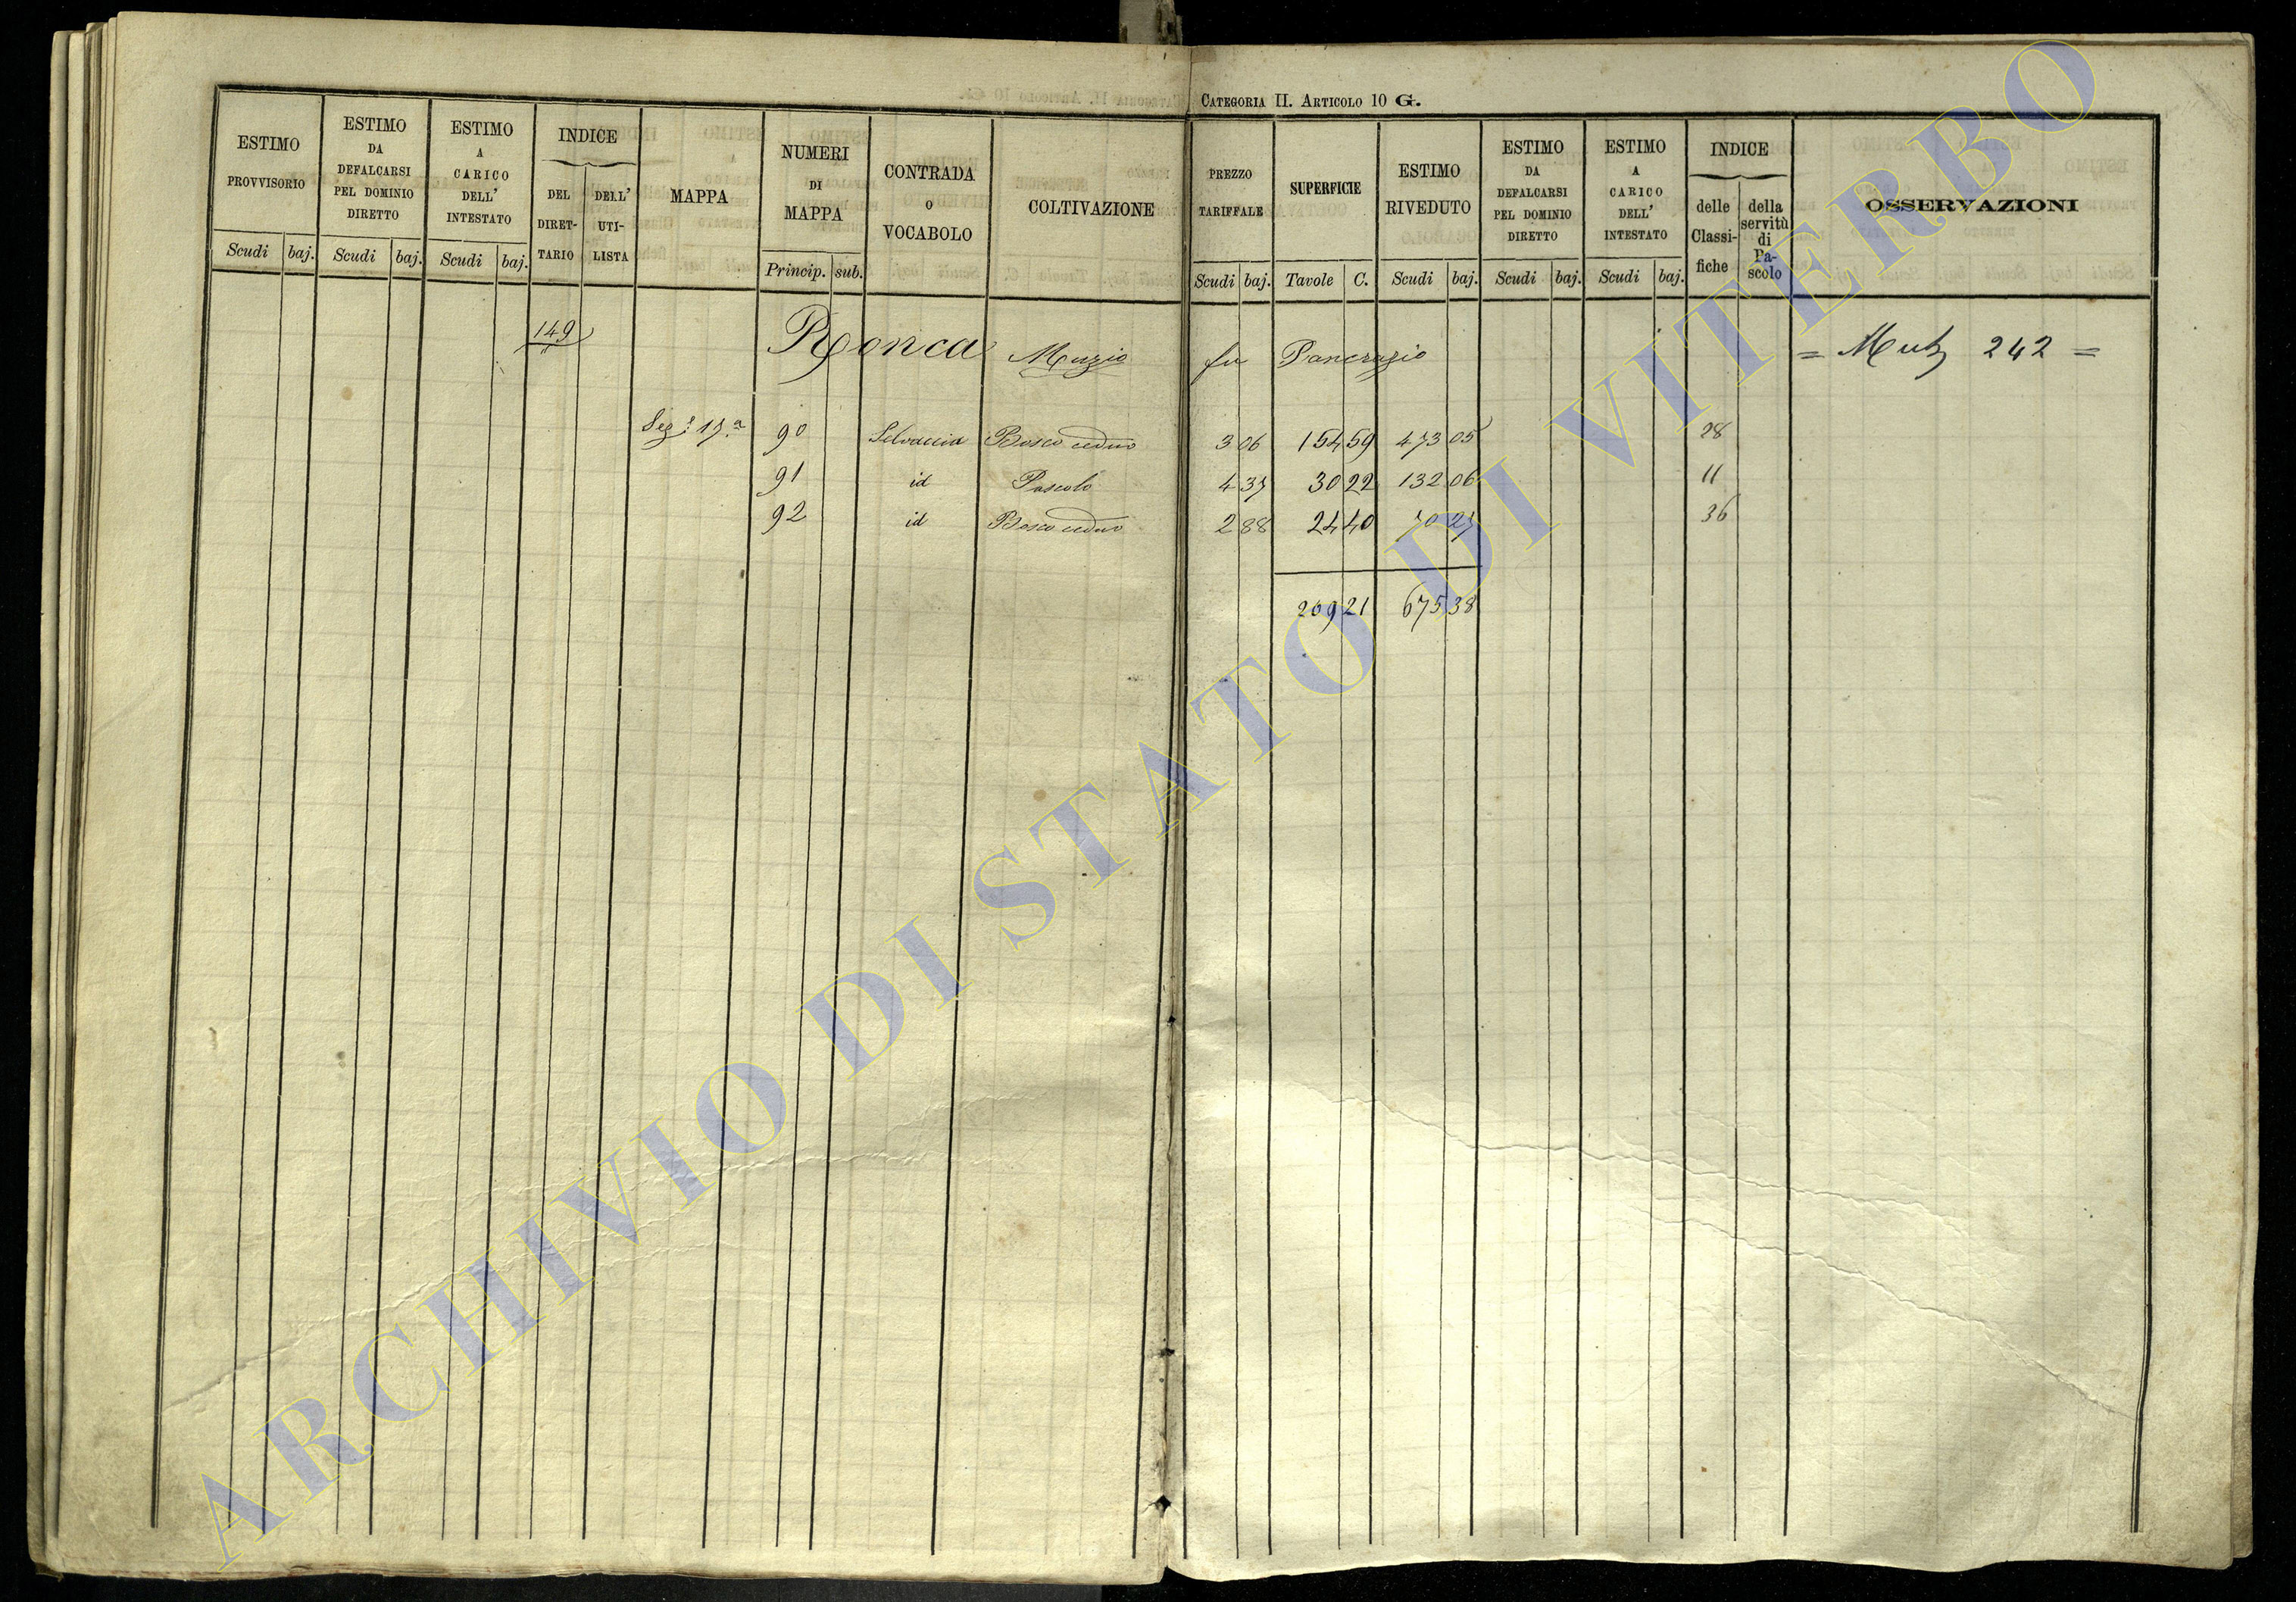 CATEGORIA II. ARTICOLO 10 G.
ESTIMO PROVVISORIO
Scudi baj.
ESTIMO DA DEFALCARSI PEL DOMINIO DIRETTO
Scudi baj.
ESTIMO A CARICO DELL' INTESTATO
Scudi baj.
INDICE
DEL DIRET-TARIO
DELL' UTI-LISTA
MAPPA
NUMERI DI MAPPA
Princip. sub.
CONTRADA O VOCABOLO
COLTIVAZIONE
PREZZO TARIFFALE
Scudi baj.
SUPERFICIE
Tavole C.
ESTIMO RIVEDUTO
Scudi baj.
ESTIMO DA DEFALCARSI PEL DOMINIO DIRETTO
Scudi baj.
ESTIMO A CARICO DELL' INTESTATO
Scudi baj.
INDICE
delle Classi-fiche
della servitù di Pa-scolo
OSSERVAZIONI
149 Ronca Muzio fu Pancrazio = Mutz 242 =
Sez.e 17.a 90 Selvaccia Bosco ceduo 3 06 154 59 473 05 28
91 id Pascolo 4 37 30 22 132 06 11
92 id Bosco ceduo 2 88 24 40 70 27 36
209 21 675 38
ARCHIVIO DI STATO DI VITERBO